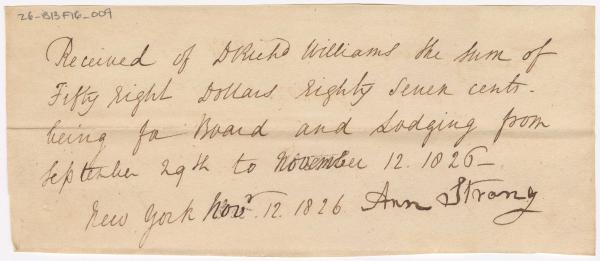 26-B13F16-009
Received of D Richd Williams the sum of
Fifty Eight Dollars Eighty Seven cents-
being for Board and Lodging from
September 29th to November 12. 1826-
New York Novr. 12. 1826 Ann Strang